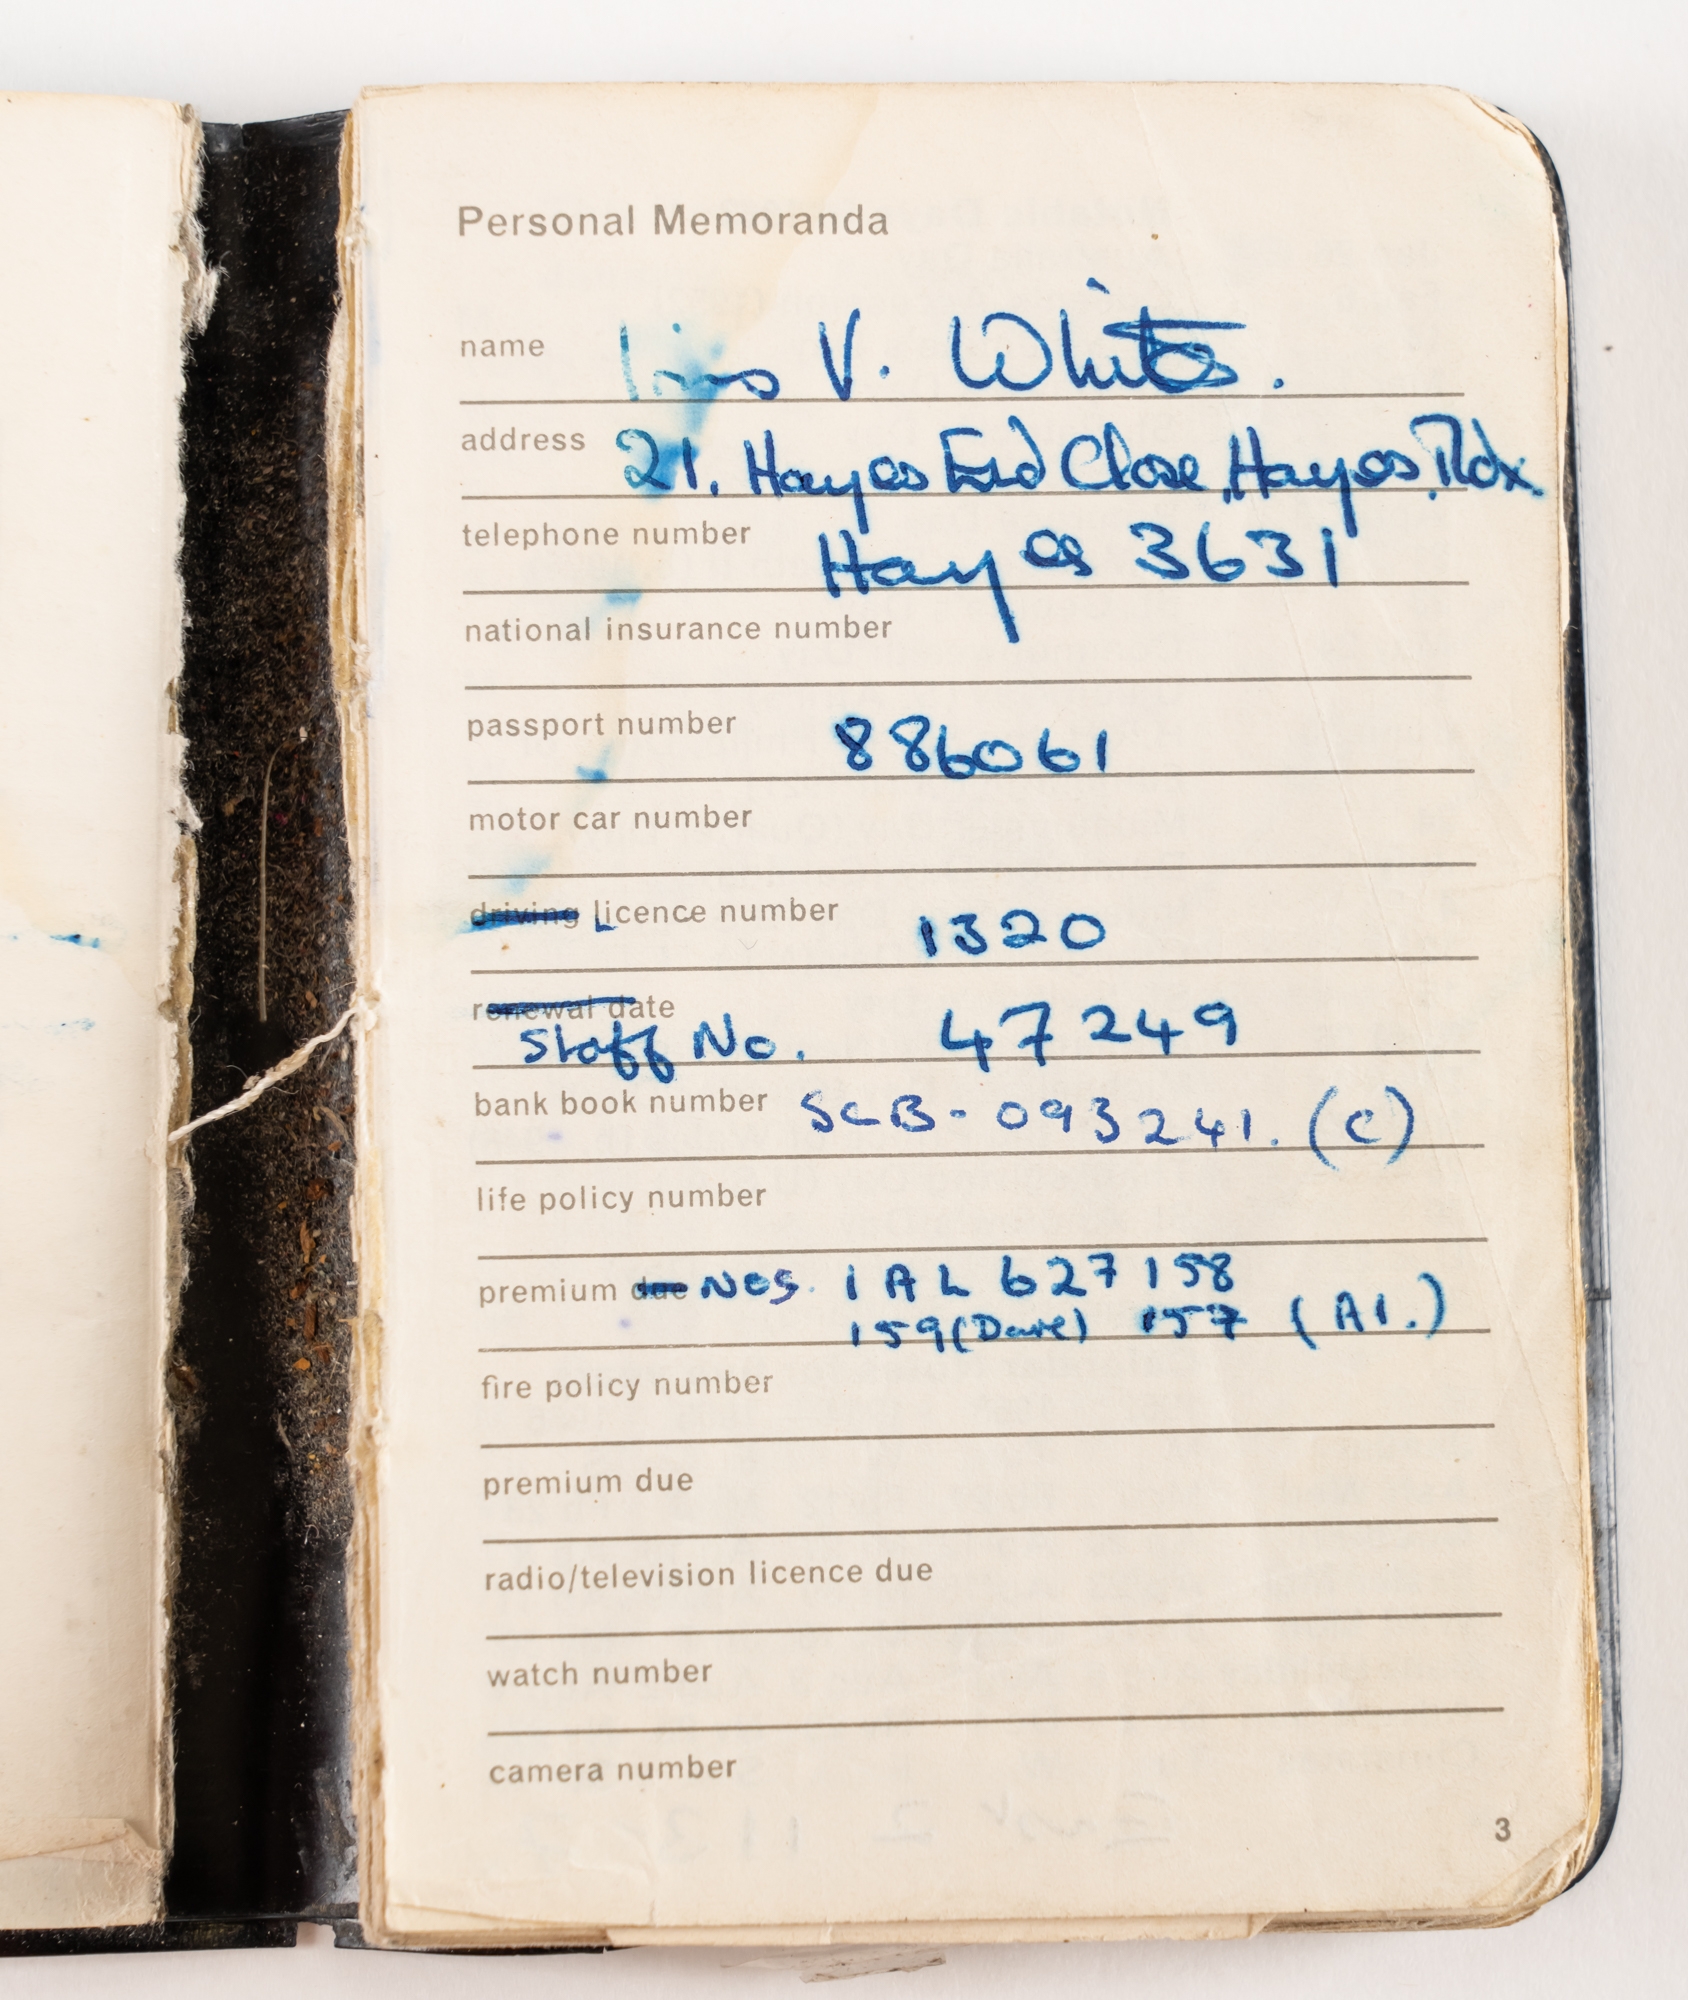 Personal Memoranda
name V. White.
address 21. Hayes End Close, Hayes, Mdx.
telephone number Hayes 3631
national insurance number
passport number 886061
motor car number
driving Licence number 1320
renewal date
Staff No. 47249
bank book number SCB-093241. (C)
life policy number
premium due Nos. 1 AL 627158
159(Dave) 157 (Al.)
fire policy number
premium due
radio/television licence due
watch number
camera number
3